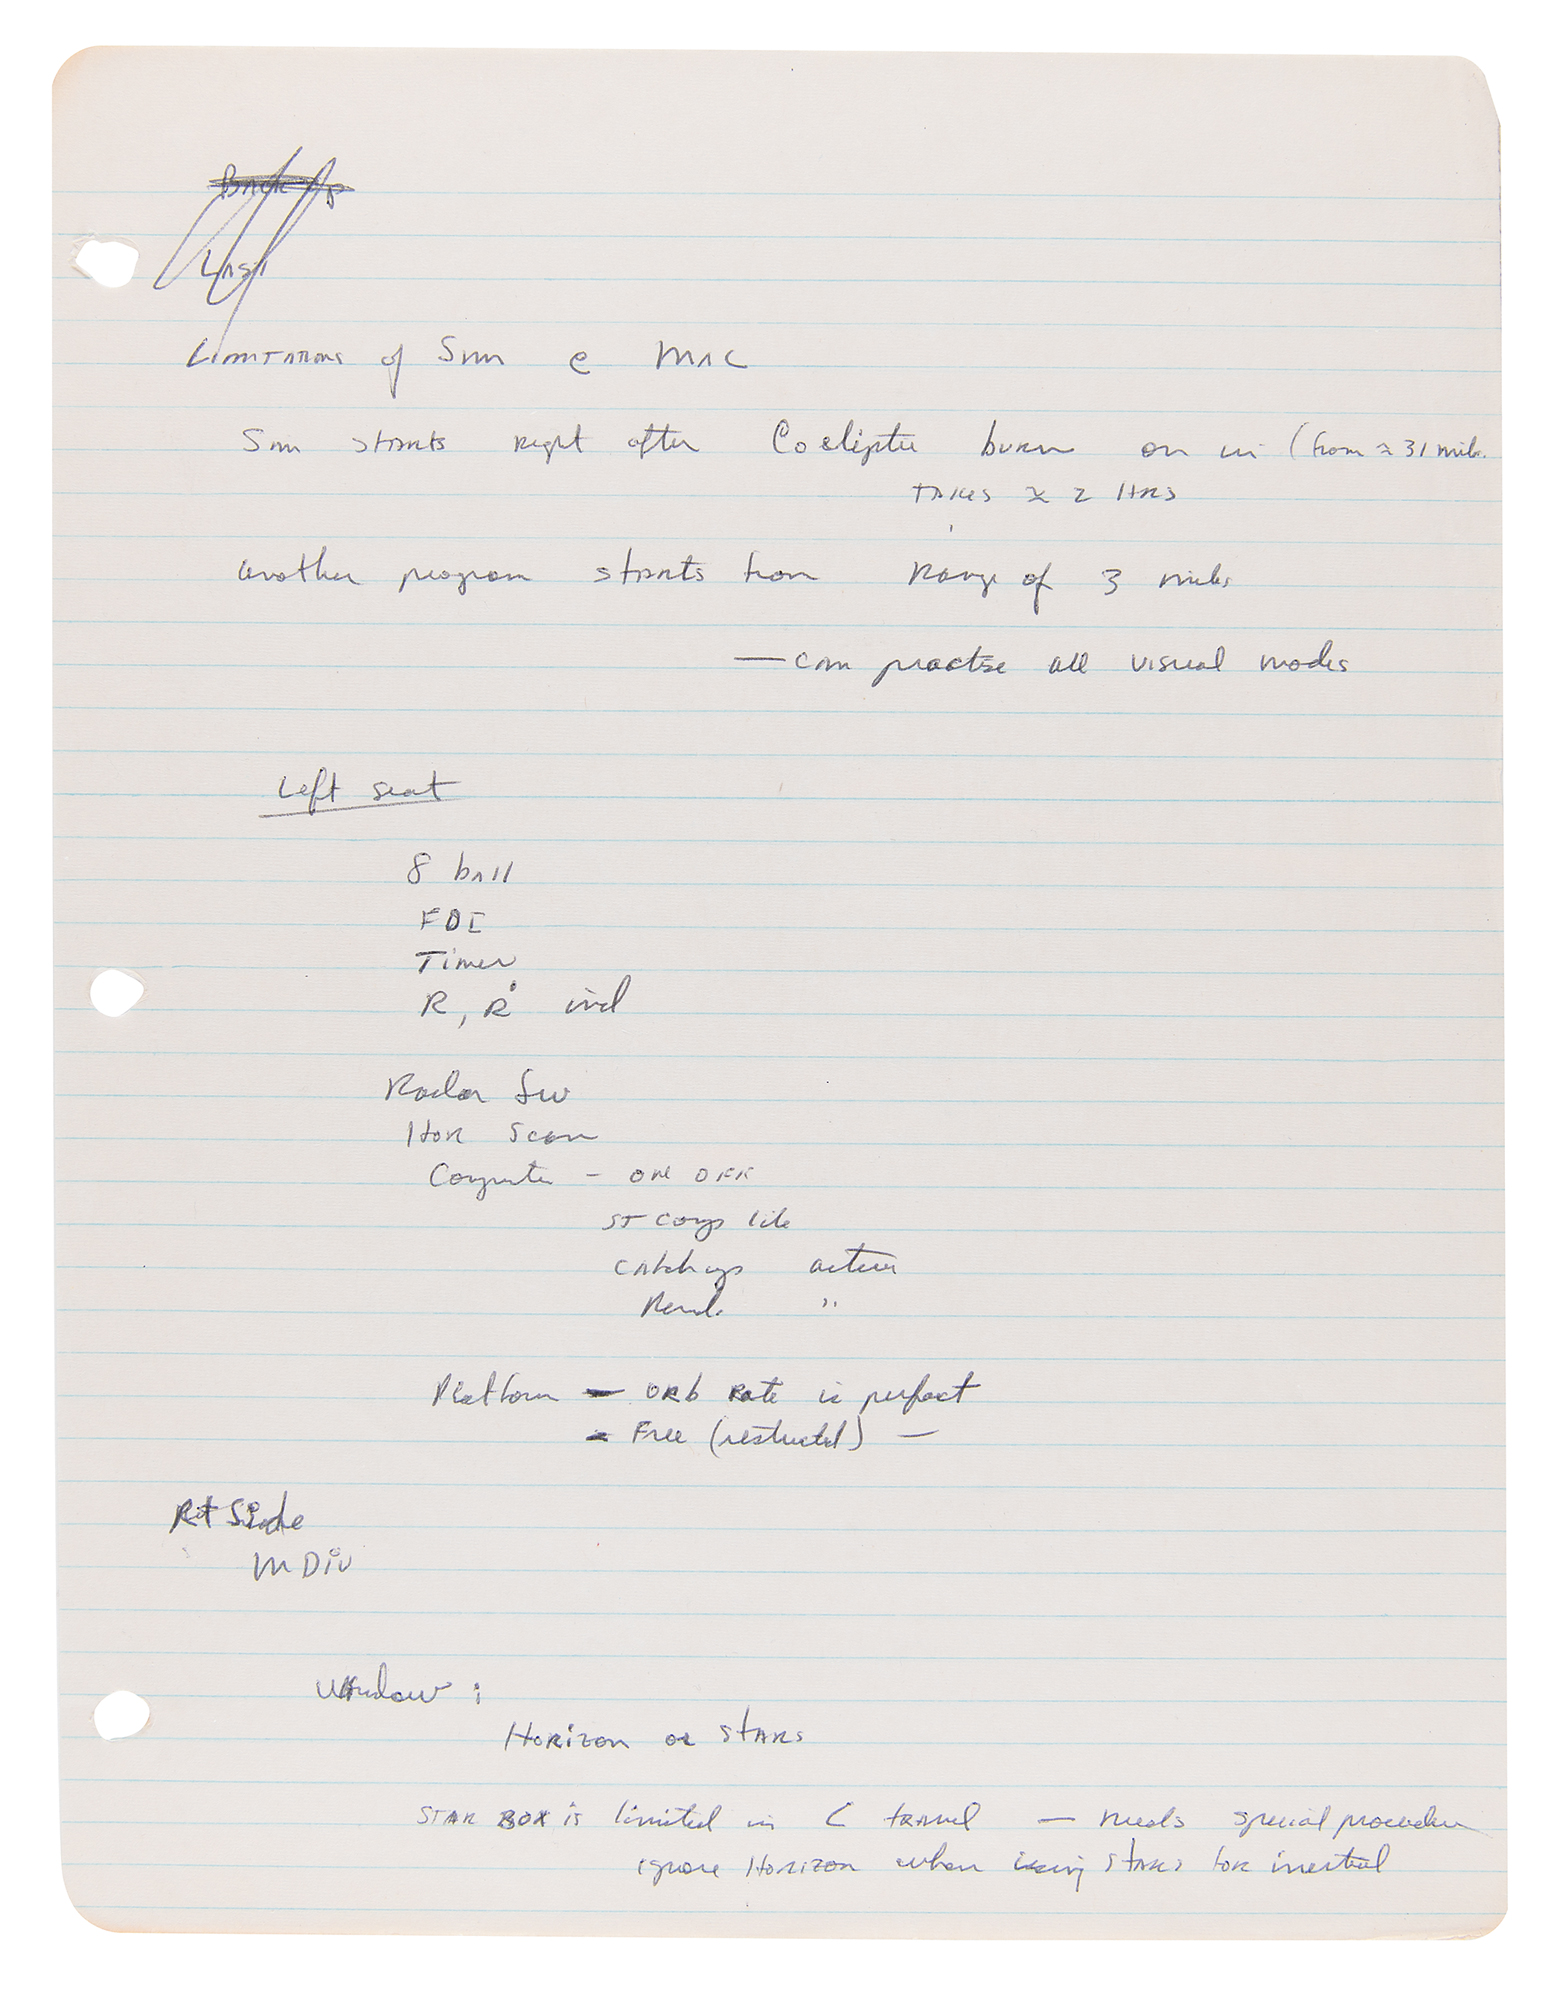 Back Up
Limitations of Sim @ MAC
Sim starts right after Coeliptic burn on in (from ≈ 31 miles
takes ≈ 2 HRS
another program starts from Range of 3 miles
— can practise all visual modes
Left seat
8 ball
FDI
Timer
R, Ṙ ind
Radar Sw
Hor Scan
Computer - ON OFF
ST Comp lite
Catchup active
Rend. "
Platform - ORB Rate is perfect
- Free (restricted) —
Rt Side
MDIU
Window :
Horizon or STARS
STAR BOX is limited in travel — needs special procedure
ignore Horizon when using STARS for inertial